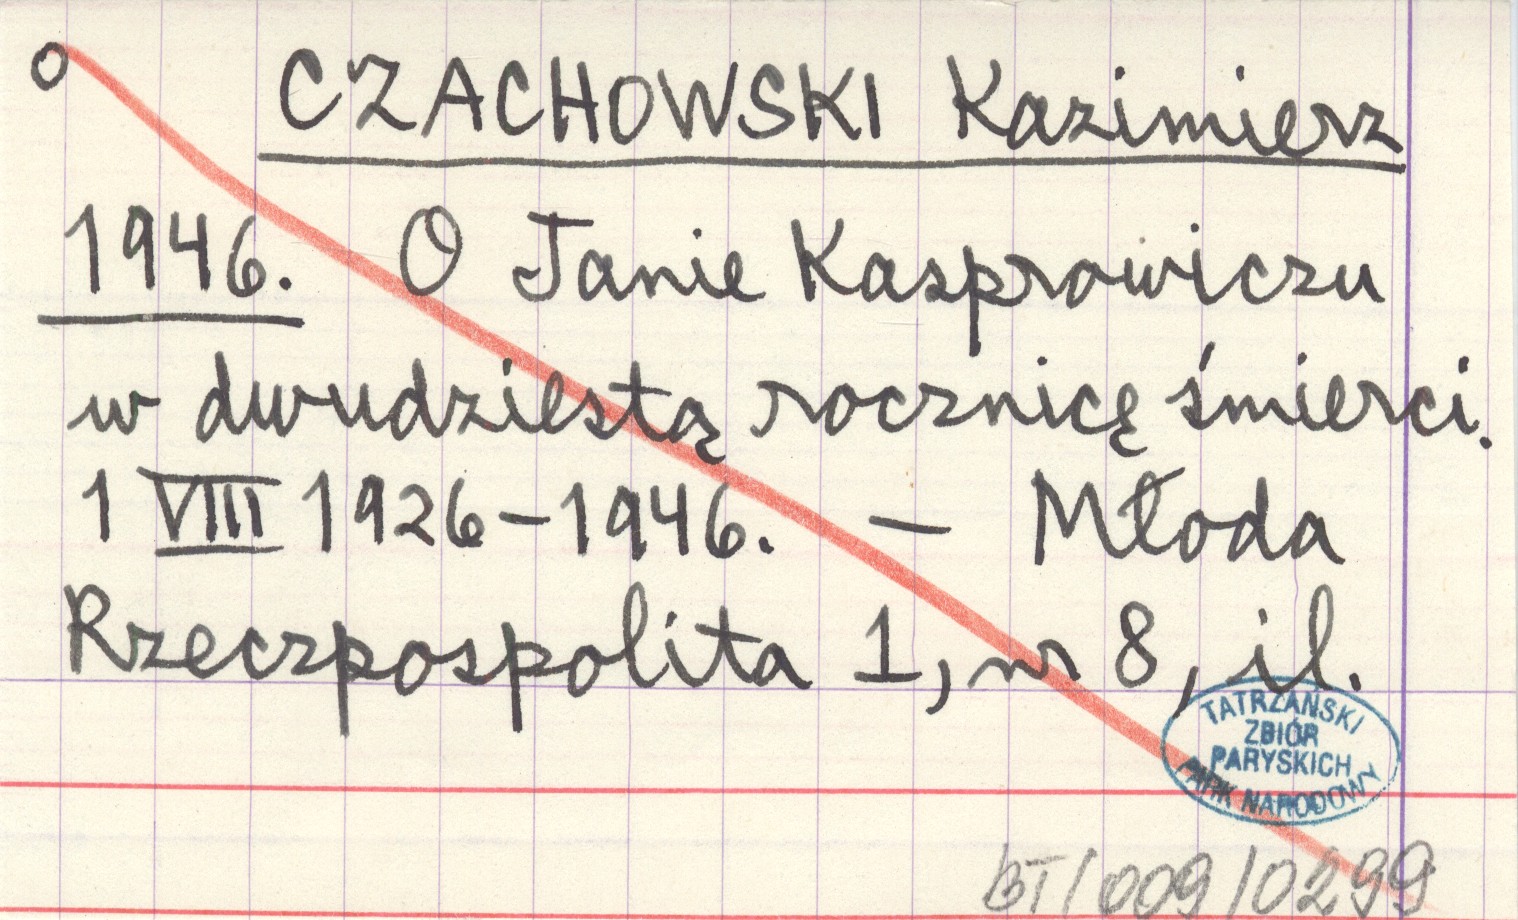 o CZACHOWSKI Kazimierz
1946. O Janie Kasprowiczu
w dwudziestą rocznicę śmierci.
1 VIII 1926-1946. - Młoda
Rzeczpospolita 1, nr 8, il.
TATRZAŃSKI
ZBIÓR
PARYSKICH
PARK NARODOWY
BT/009/0299